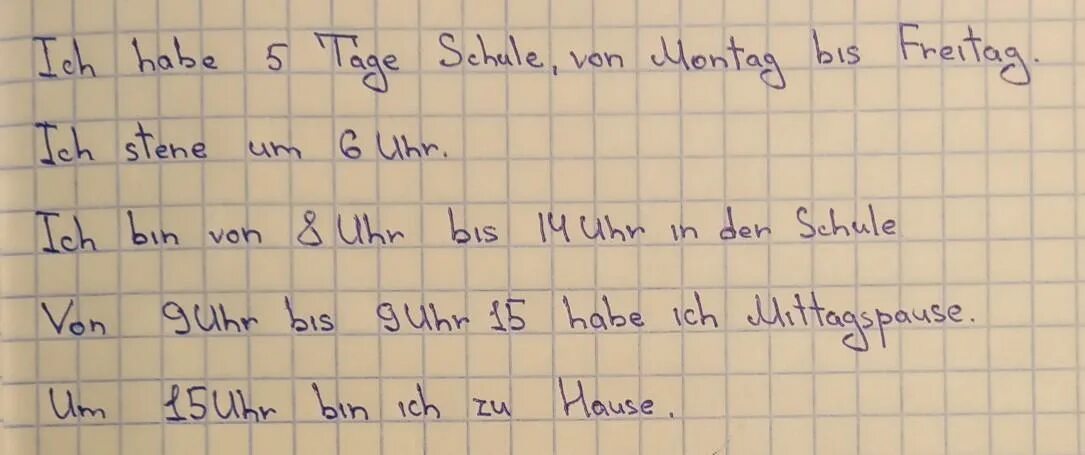 Ich habe 5 Tage Schule, von Montag bis Freitag.
Ich stene um 6 Uhr.
Ich bin von 8 Uhr bis 14 Uhr in der Schule
Von 9 Uhr bis 9 Uhr 15 habe ich Mittagspause.
Um 15 Uhr bin ich zu Hause.